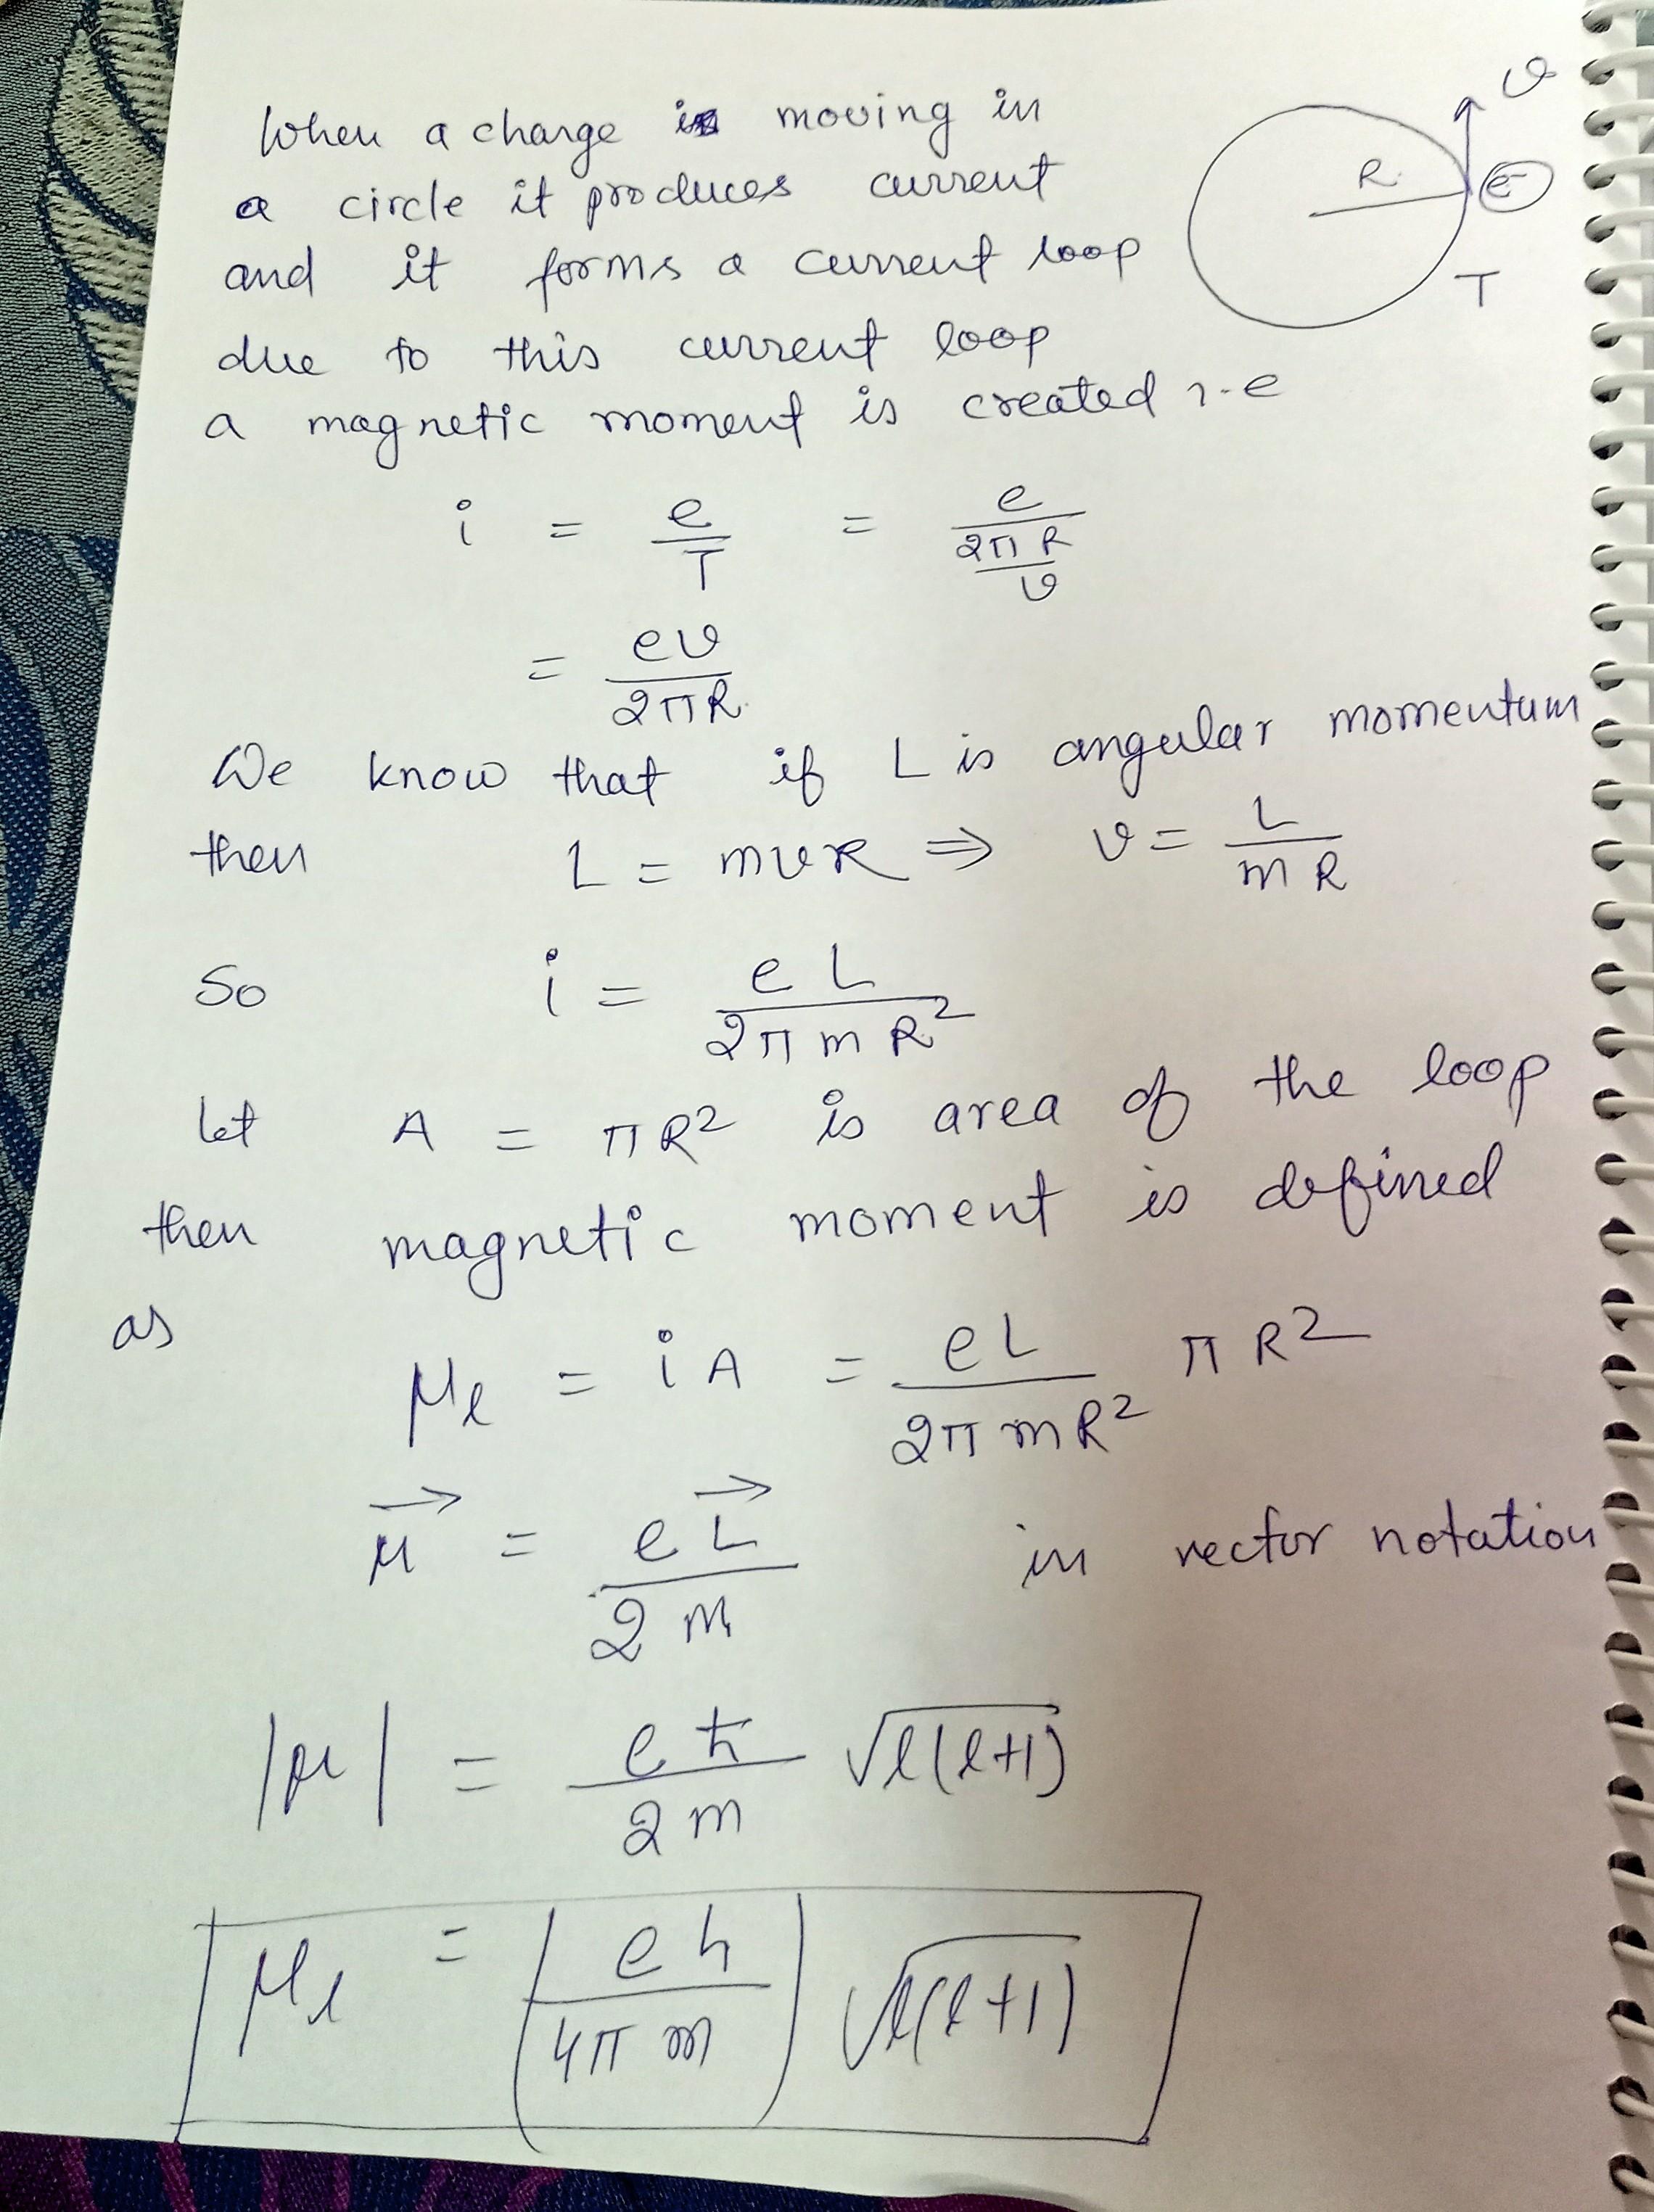 When a charge is moving in
a circle it produces current
and it forms a current loop
due to this current loop
a magnetic moment is created i.e
R
v
e⁻
T
i = e/T = e/(2πR/v)
= ev/2πR
We know that if L is angular momentum
then L = mvR ⇒ v = L/mR
So i = eL/2πmR²
let A = πR² is area of the loop
then magnetic moment is defined
as
μₗ = iA = eL/2πmR² πR²
μ⃗ = eL⃗/2m in vector notation
|μ| = eħ/2m √l(l+1)
μₗ = (eh/4πm) √l(l+1)